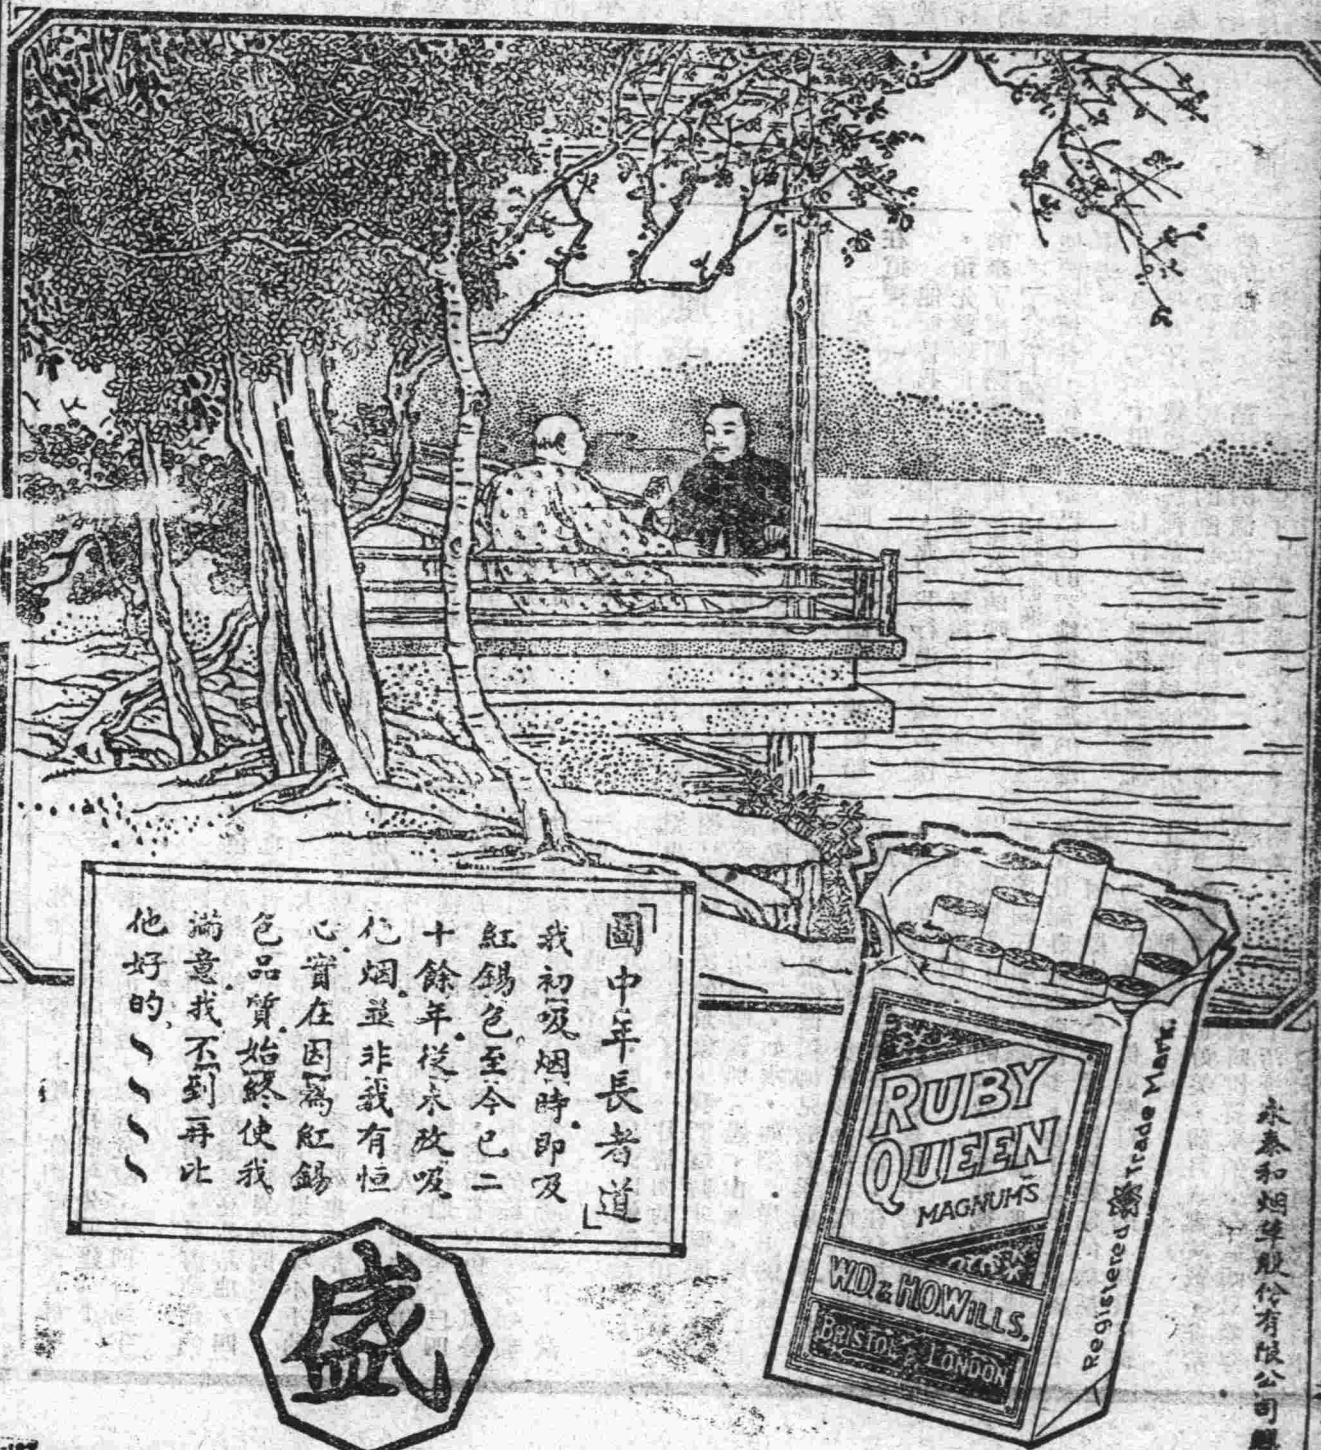 「圖中年長者道」
我初吸烟時即吸
紅錫包至今已二
十餘年從未改吸
他烟並非我有恒
心實在因為紅錫
包品質始終使我
滿意我不到再比
他好的
盛
RUBY
QUEEN
MAGNUMS
W.D. & H.O. WILLS.
BRISTOL & LONDON
Registered Trade Mark.
永泰和烟草股份有限公司